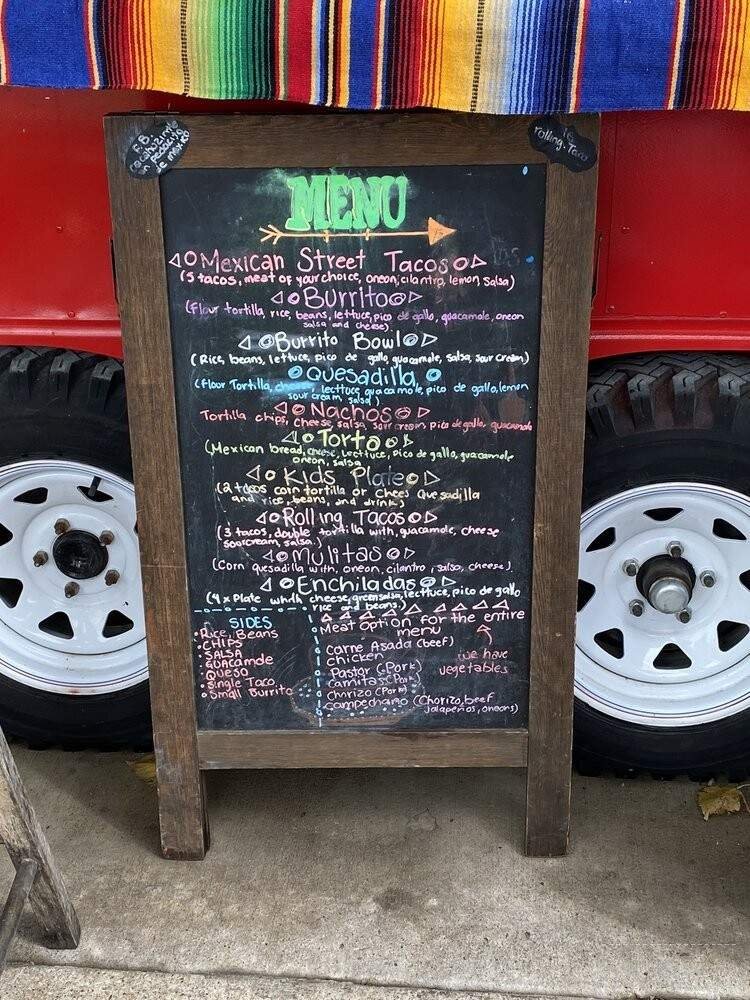 F.B.
cocinita
un pedacito
de mexico
IG
rolling.Taco
MENU
Mexican Street Tacos
(5 tacos, meat of your choice, oneon, cilantro, lemon, salsa)
Burrito
(flour tortilla, rice, beans, lettuce, pico de gallo, guacamole, oneon
salsa and cheese)
Burrito Bowl
(Rice, beans, lettuce, pico de gallo, guacamole, salsa, sour cream)
Quesadilla
(flour Tortilla, cheese, lecttuce, guacamole, pico de gallo, lemon
sour cream, salsa)
Nachos
Tortilla chips, cheese, salsa, sour cream, pico de gallo, guacamole
Torta
(Mexican bread, cheese, lecttuce, Pico de gallo, guacamole
oneon, salsa
Kids Plate
(2 tacos corn tortilla or chees quesadilla
and rice, beans, and drink)
Rolling Tacos
(3 tacos, double tortilla with, guacamole, cheese
sourcream, salsa.)
Mulitas
(Corn quesadilla with, oneon, cilantro, salsa, cheese)
Enchiladas
(4 x Plate whith cheese, green salsa, lecttuce, pico de gallo
rice and beans.)
SIDES
• Rice, Beans
• CHIPS
• SALSA
• GUACAMOLE
• QUESO
• Single Taco
• Small Burrito
Meat option for the entire
menu
carne Asada (beef)
chicken
Pastor (Pork)
carnitas (Pork)
chorizo (Pork)
campechano (Chorizo, beef
Jalapeños, oneons)
we have
vegetables